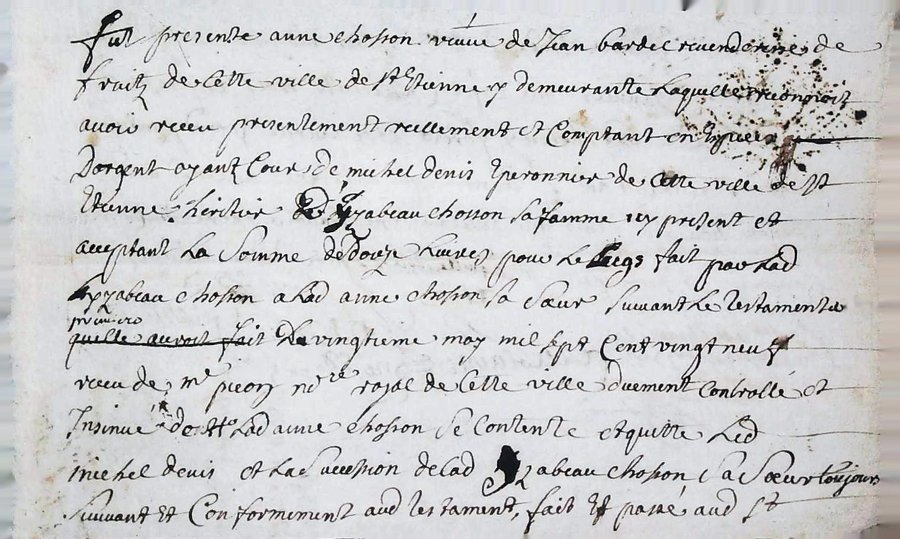 fut presente anne Chosson veuve de Jean bardel revenderesse de
fruitz de Cette ville de St Etienne y demeurante Laquelle reconnoit
avoir receu presentement reellement et Comptant en Especes
Dargent ayant Cour, de michel denis Eperonnier de Cette ville de St
Etienne heritier de yzabeau Chosson sa famme icy present et
acceptant La Somme de Douze Livres pour Le Legs fait par Lad
yzabeau Chosson a Lad anne Chosson sa Sœur suivant Le testament
quelle auroit fait Le vingtieme may mil sept Cent vingt neuf
receu de me pierry nore royal de Cette ville duement Controllé et
Insinué de Lad anne Chosson se Contente et quitte Led
michel denis et La Succession de Lad yzabeau Chosson sa Sœur toujours
Suivant Et Conformement aud testament, fait Et passé aud St